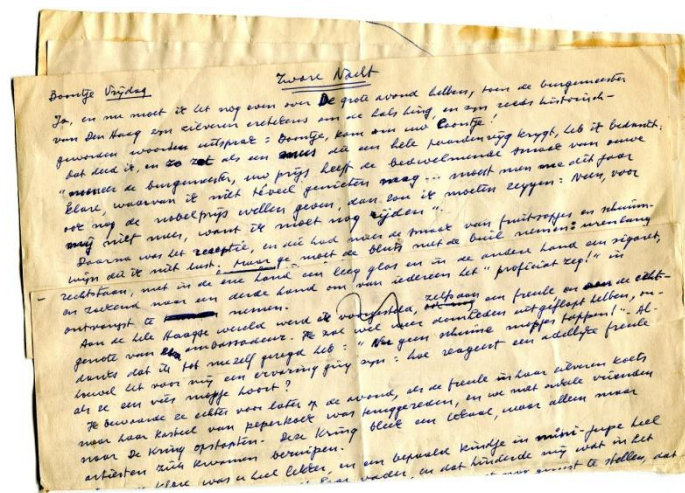 Boontje Vrijdag
Zware Nacht
Ja, en nu moet ik het nog even over De grote avond hebben, toen de burgemeester
van Den Haag zijn zilveren ereteken om de hals hing, en zijn reeds historisch-
geworden woorden uitsprak: Boontje, kom om uw loontje!
dat deed ik, en zo zat als een die een hele paardenvijg krygt, heb ik bedankt:
de burgemeester, uw prijs heeft de bedwelmende smaak van ouwe
klare, waarvan ik niet teveel genieten mag... moest men me dit jaar
ook nog de nobelprijs willen geven, dan zou ik moeten zeggen: Neen, voor
mij niet meer, want ik moet nog rijden".
Daarna was het receptie, en die had meer de smaak van fruitsopjes en schuim-
wijn die ik niet lust. moet de bluts met de buil nemen: urenlang
rechtstaan, met in de ene hand een leeg glas en in de andere hand een sigaret,
en zoekend naar een derde hand om van iedereen het "proficiat zeg!" in
ontvangst te nemen.
Aan de hele Haagse wereld werd ik voorgesteld, zelfs aan een freule en aan de echt-
genote van ambassadeur. Ik zal wel veer domheden uitgeflapt hebben, on-
danks dat ik tot mezelf gezegd heb: "Nu geen schuine mopjes tappen!". Al-
hoewel het voor mij een ervaring ging zijn: hoe reageert een adellijke freule
als ze een vies mopje hoort?
Ik bewaarde ze echter voor later op de avond, als de freule in haar zilveren koets
naar haar kasteel van peperkoek was teruggereden, en we met enkele vrienden
naar De Kring opstapten. Deze Kring bleek een lokaal, waar alleen maar
artiesten zich kwamen bezuipen.
klare was er heel lekker, en een bepaald kindje in mini-jupe heel
vader, en dat hinderde mij wat in het
te stellen, dat